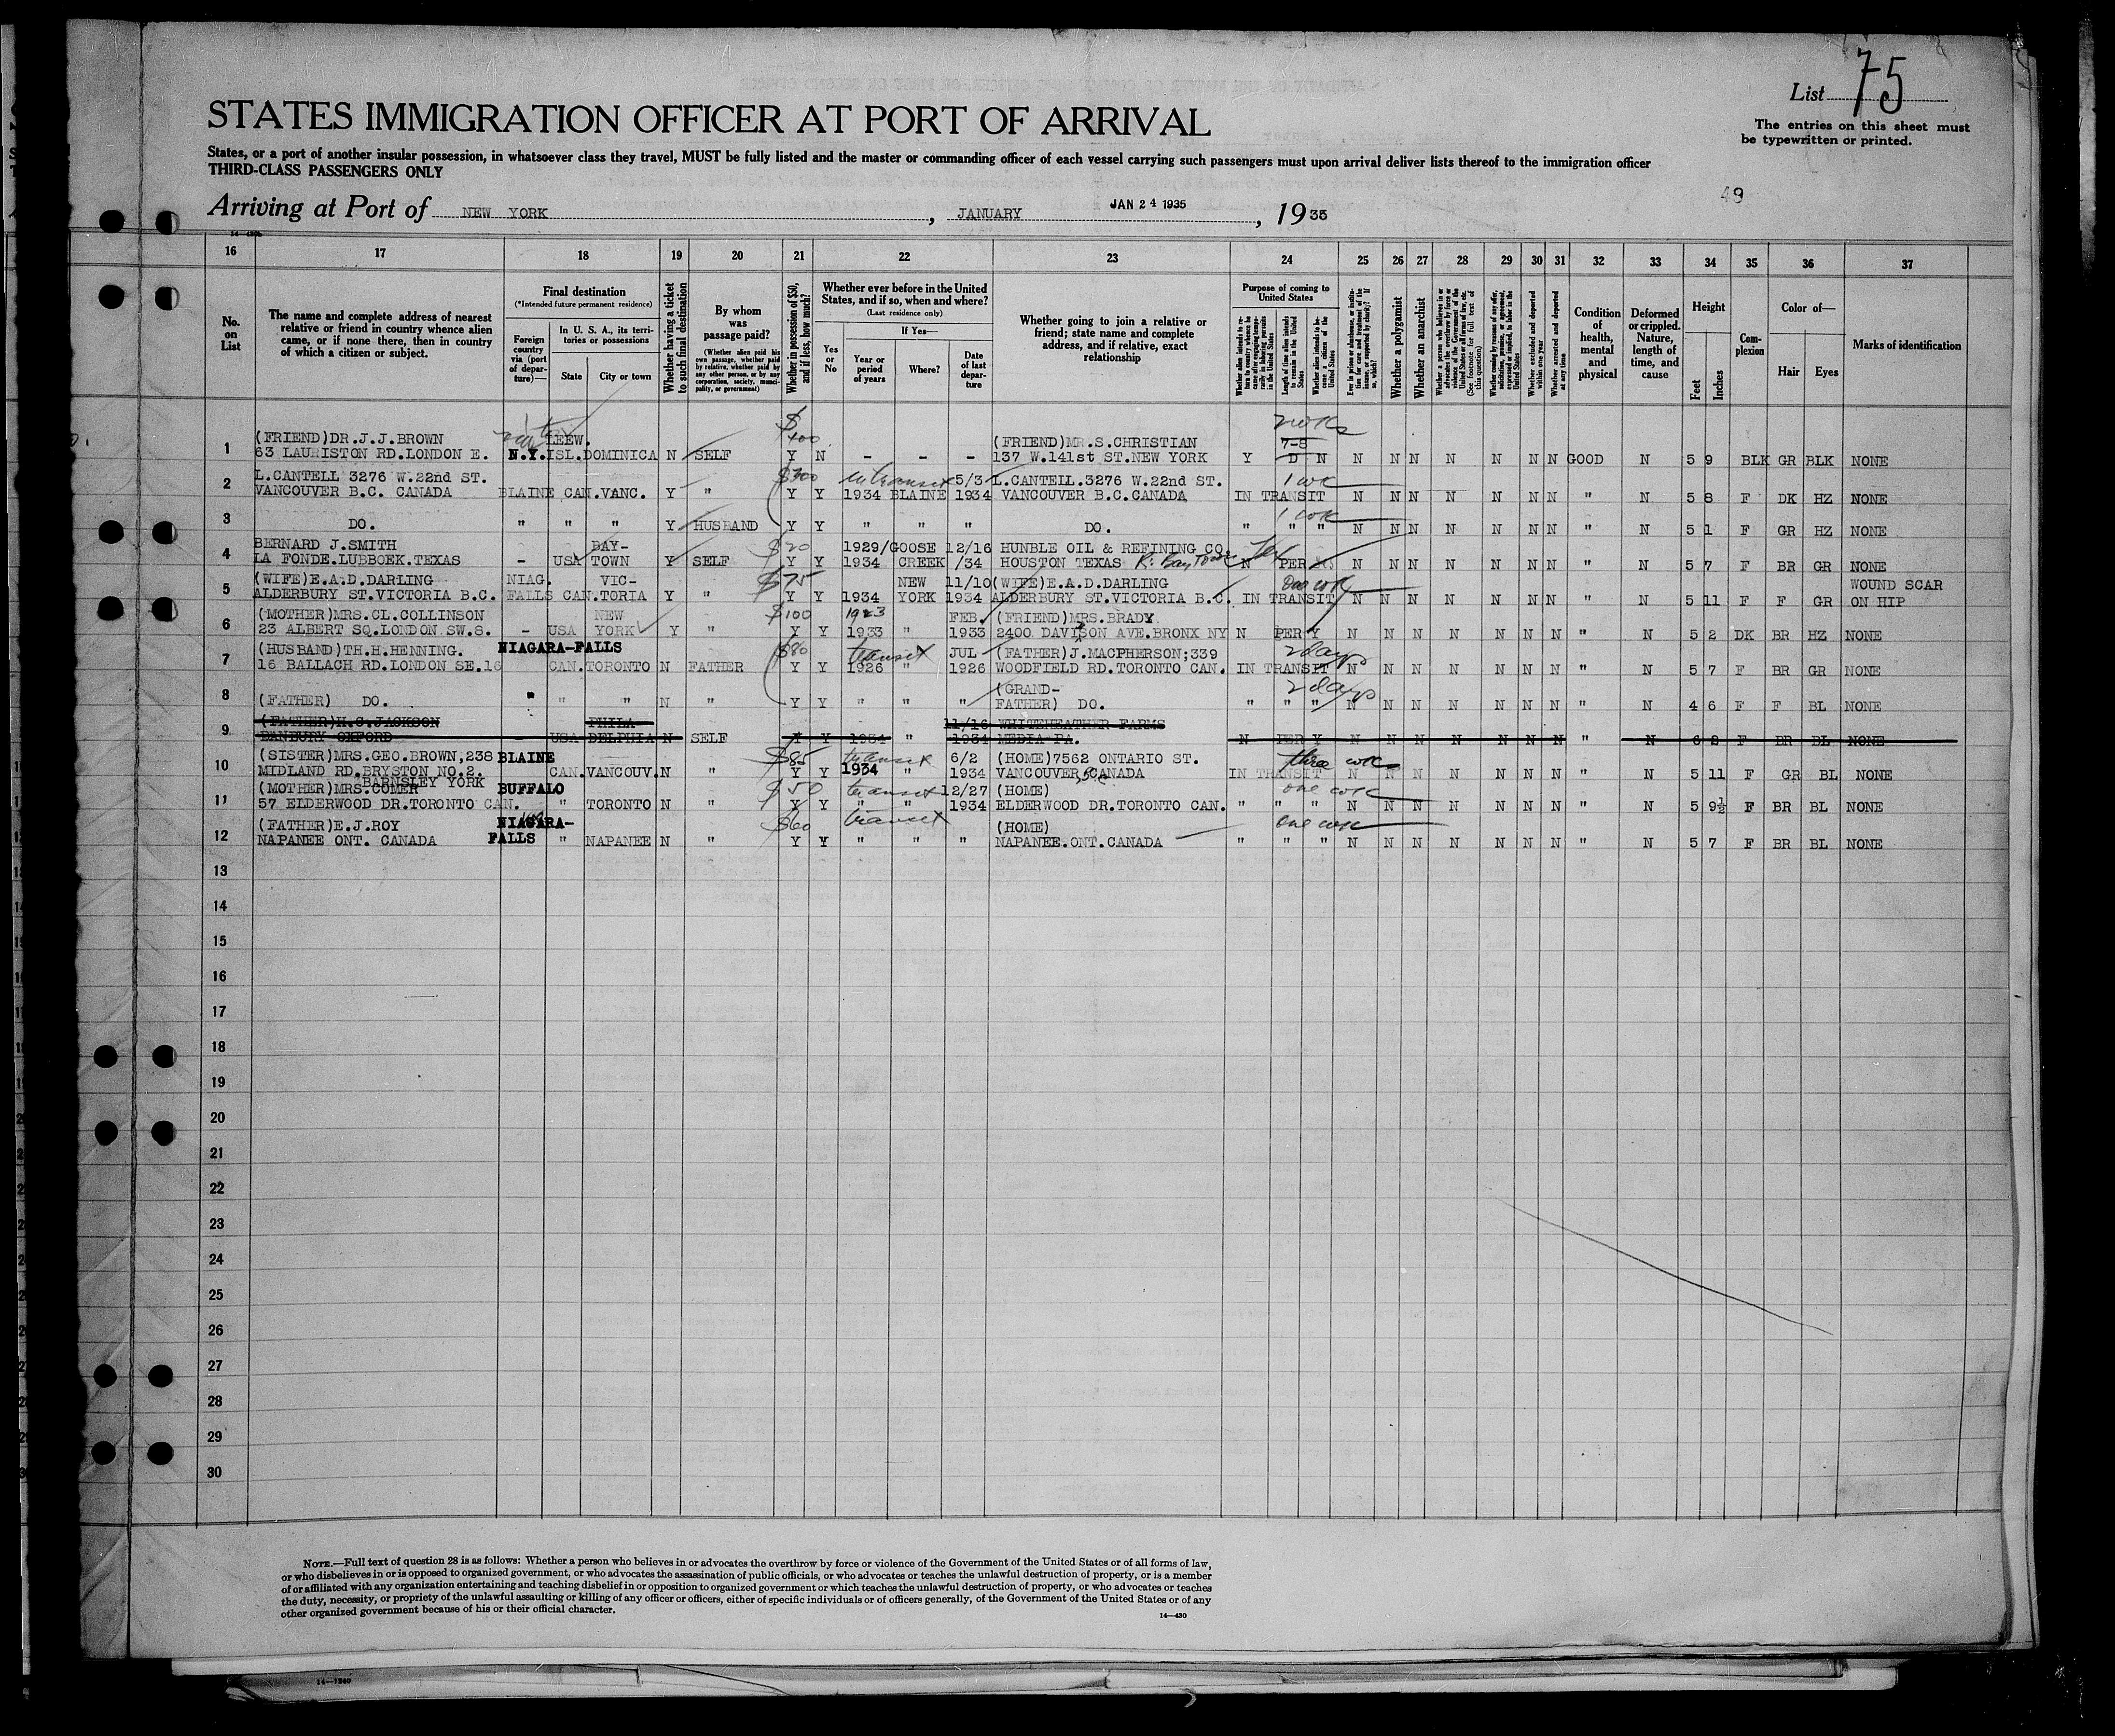 List 75
The entries on this sheet must
be typewritten or printed.
STATES IMMIGRATION OFFICER AT PORT OF ARRIVAL
States, or a port of another insular possession, in whatsoever class they travel, MUST be fully listed and the master or commanding officer of each vessel carrying such passengers must upon arrival deliver lists thereof to the immigration officer
THIRD-CLASS PASSENGERS ONLY
49
Arriving at Port of NEW YORK, JANUARY JAN 24 1935, 1935
16 17 18 19 20 21 22 23 24 25 26 27 28 29 30 31 32 33 34 35 36 37
No. on List
The name and complete address of nearest relative or friend in country whence alien came, or if none there, then in country of which a citizen or subject.
Final destination
(*Intended future permanent residence)
Foreign country via (port of departure)—
In U. S. A., its territories or possessions
State
City or town
Whether having a ticket to such final destination
By whom was passage paid?
(Whether alien paid his own passage, whether paid by relative, whether paid by any other person, or by any corporation, society, municipality, or government)
Whether in possession of $50, and if less, how much?
Whether ever before in the United States, and if so, when and where?
(Last residence only)
Yes or No
If Yes—
Year or period of years
Where?
Date of last departure
Whether going to join a relative or friend; state name and complete address, and if relative, exact relationship
Purpose of coming to United States
Whether alien intends to return to country whence he came after engaging temporarily in laboring pursuits in the United States
Length of time alien intends to remain in the United States
Whether alien intends to become a citizen of the United States
Ever in prison or almshouse, or institution for care and treatment of the insane, or supported by charity? If so, which?
Whether a polygamist
Whether an anarchist
Whether a person who believes in or advocates the overthrow by force or violence of the Government of the United States or all forms of law, etc. (See footnote for full text of this question)
Whether coming by reasons of any offer, solicitation, promise, or agreement, expressed or implied, to labor in the United States
Whether excluded and deported within one year
Whether arrested and deported at any time
Condition of health, mental and physical
Deformed or crippled. Nature, length of time, and cause
Height
Feet
Inches
Complexion
Color of—
Hair
Eyes
Marks of identification
$ 100 2 wks
(FRIEND)DR.J.J.BROWN LEEW. (FRIEND)MR.S.CHRISTIAN 7-8
1 63 LAURISTON RD.LONDON E. N.Y. ISL. DOMINICA N SELF Y N - - - 137 W.141st ST.NEW YORK Y D N N N N N N N N GOOD N 5 9 BLK GR BLK NONE
L.CANTELL 3276 W.22nd ST. $300 in transit 5/3 L.CANTEIL.3276 W.22nd ST. 1 wk
2 VANCOUVER B.C. CANADA BLAINE CAN.VANC. Y " Y Y 1934 BLAINE 1934 VANCOUVER B.C.CANADA IN TRANSIT N N N N N N N " N 5 8 F DK HZ NONE
1 wk
3 DO. " " " Y HUSBAND Y Y " " " DO. " " " N N N N N N N " N 5 1 F GR HZ NONE
BERNARD J.SMITH BAY- $20 1929/GOOSE 12/16 HUNBLE OIL & REFINING CO.
4 LA FONDE.LUBBOEK.TEXAS - USA TOWN Y SELF Y Y 1934 CREEK /34 HOUSTON TEXAS R. Baytown Tex N PER N N N N N N N " N 5 7 F BR GR NONE
(WIFE)E.A.D.DARLING NIAG. VIC- $75 NEW 11/10 (WIFE)E.A.D.DARLING one wk WOUND SCAR
5 ALDERBURY ST.VICTORIA B.C. FALLS CAN.TORIA Y " Y Y 1934 YORK 1934 ALDERBURY ST.VICTORIA B.C. IN TRANSIT N N N N N N N " N 5 11 F F GR ON HIP
(MOTHER)MRS.CL.COLLINSON NEW $100 1923 FEB. (FRIEND)MRS.BRADY.
6 23 ALBERT SQ.LONDON SW.8. - USA YORK Y " Y Y 1933 " 1933 2400 DAVISON AVE.BRONX NY N PER Y N N N N N N N " N 5 2 DK BR HZ NONE
(HUSBAND)TH.H.HENNING. NIAGARA-FALLS $80 transit JUL (FATHER)J.MACPHERSON;339 2 days
7 16 BALLACH RD.LONDON SE.16 CAN.TORONTO N FATHER Y Y 1926 " 1926 WOODFIELD RD.TORONTO CAN. IN TRANSIT N N N N N N N " N 5 7 F BR GR NONE
(GRAND- 2 days
8 (FATHER) DO. " " " N " Y Y " " " FATHER) DO. " " " N N N N N N N " N 4 6 F F BL NONE
(FATHER)H.C.JACKSON PHILA- 11/16 WHITEHEATHER FARMS
9 BANBURY OXFORD USA DELPHIA N SELF Y Y 1934 " 1934 MEDIA PA. N PER Y N N N N N N N " N 6 2 F BR BL NONE
(SISTER)MRS.GEO.BROWN,238 BLAINE $85 transit 6/2 (HOME)7562 ONTARIO ST. three wks
10 MIDLAND RD.BRYSTON NO.2. CAN.VANCOUV. N " Y Y 1934 " 1934 VANCOUVER,B.C.CANADA IN TRANSIT N N N N N N N " N 5 11 F GR BL NONE
BARNSLEY YORK
(MOTHER)MRS.COMER BUFFALO $50 transit 12/27 (HOME) one wk
11 57 ELDERWOOD DR.TORONTO CAN. " TORONTO N " Y Y " " 1934 ELDERWOOD DR.TORONTO CAN. " " " N N N N N N N " N 5 9½ F BR BL NONE
(FATHER)E.J.ROY NIAGARA- $60 transit (HOME) one wk
12 NAPANEE ONT. CANADA FALLS " NAPANEE N " Y Y " " " NAPANEE.ONT.CANADA " " " N N N N N N N " N 5 7 F BR BL NONE
13
14
15
16
17
18
19
20
21
22
23
24
25
26
27
28
29
30
NOTE.—Full text of question 28 is as follows: Whether a person who believes in or advocates the overthrow by force or violence of the Government of the United States or of all forms of law,
or who disbelieves in or is opposed to organized government, or who advocates the assassination of public officials, or who advocates or teaches the unlawful destruction of property, or is a member
of or affiliated with any organization entertaining and teaching disbelief in or opposition to organized government or which teaches the unlawful destruction of property, or who advocates or teaches
the duty, necessity, or propriety of the unlawful assaulting or killing of any officer or officers, either of specific individuals or of officers generally, of the Government of the United States or of any
other organized government because of his or their official character.
14—430
14—1240